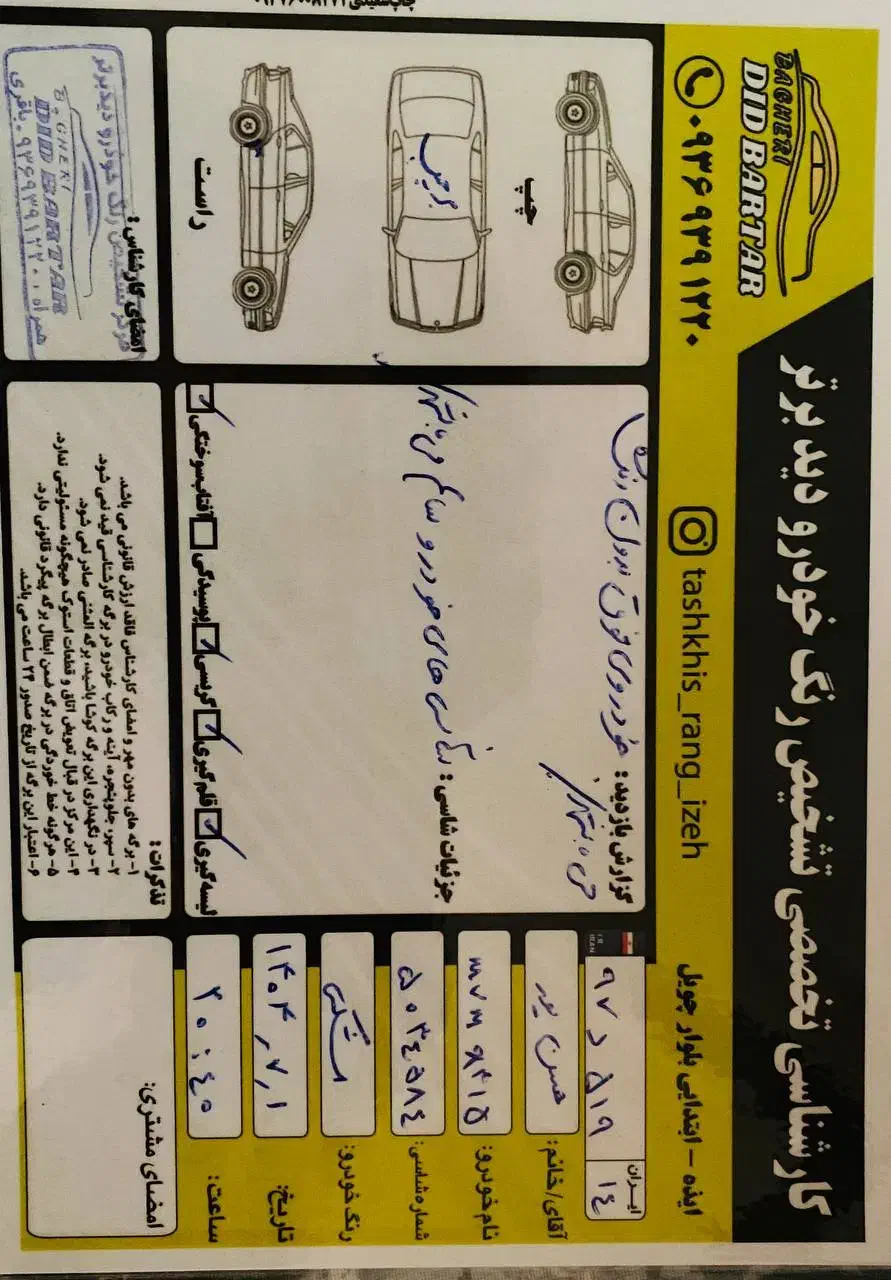 کارشناسی تخصصی تشخیص رنگ خودرو دید برتر
BAGHERI
DID BARTAR
۰۹۳۶۹۳۹۱۲۲۰
tashkhis_rang_izeh
ایذه - ابتدایی بلوار چویل
چپ
راست
گزارش بازدید: خودروی فوق بدون رنگ
می باشد
جزئیات شاسی: شاسی های خودرو سالم می باشد
لیسه گیری قلم گیری گریسی پوسیدگی آفتاب سوختگی
ایران
۹۷ د ۵۱۹ ۱۴
آقای/خانم: حسن پور
نام خودرو: mvm X315
شماره شاسی: ۵۰۳۴۵۸۴
رنگ خودرو: مشکی
تاریخ: ۱۴۰۴,۷,۱
ساعت: ۲۰:۴۵
تذکرات:
۱- برگه های بدون مهر و امضای کارشناس فاقد ارزش قانونی می باشد.
۲- سپر، جلوپنجره، آینه و رکاب خودرو در برگه کارشناسی قید نمی شود.
۳- در نگهداری این برگه کوشا باشید، برگه المثنی صادر نمی شود.
۴- این مرکز در قبال تعویض اتاق و قطعات استوک هیچگونه مسئولیتی ندارد.
۵- هرگونه خط خوردگی در برگه ضمن ابطال برگه پیگرد قانونی دارد.
۶- اعتبار این برگه از تاریخ صدور ۲۴ ساعت می باشد.
امضای کارشناس:
مرکز تشخیص رنگ خودرو دید برتر
BAGHERI
DID BARTAR
همراه: ۰۹۳۶۹۳۹۱۲۲۰ باقری
امضای مشتری: